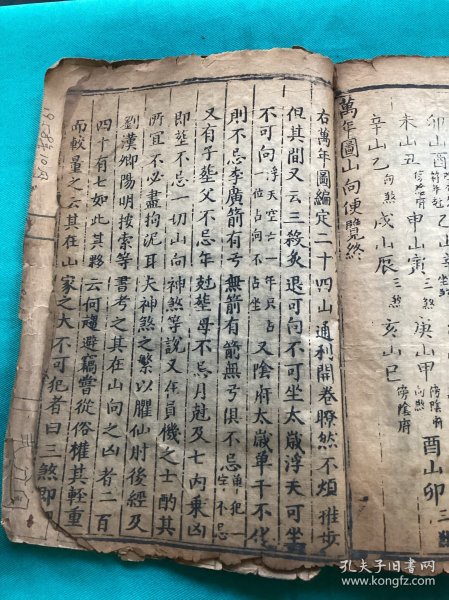 卯山酉
未山丑
申山寅 三煞
庚山甲
酉山卯 三煞
辛山乙 向煞
戌山辰 三煞
亥山巳 傍陰府
萬年圖山向便覽終
右萬年圖編定二十四山通利開卷瞭然不煩推步
但其間又云三殺炙退可向不可坐太歲浮天可坐
不可向 浮天空亡一年只占一位占向不占坐 又陰府太歲單干不
則不忌李廣箭有弓無箭有箭無弓俱不忌單犯一
又有子塟父不忌年尅塟母不忌月尅及七内乘凶
即塟不忌一切山向神煞等說又在員機之士酌其
所宜不必盡拘泥耳夫神煞之繁以臞仙肘後經及
劉漢卿陽明按索等書考之其在山向之凶者二百
四十有七如此其夥云何趨避竊嘗從俗權其輕重
而較量之云其在山家之大不可犯者曰三煞即
孔夫子旧书网
www.kongfz.com